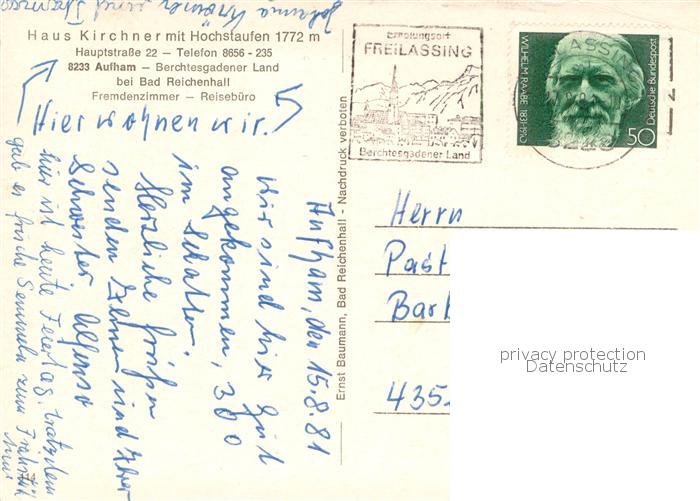 Haus Kirchner mit Hochstaufen 1772 m
Hauptstraße 22 — Telefon 8656 - 235
8233 Aufham — Berchtesgadener Land
bei Bad Reichenhall
Fremdenzimmer — Reisebüro
Hier wohnen wir.
Aufham, den 15.8.81
Wir sind hier gut
angekommen, 30°
im Schatten.
Herzliche Grüße
senden Ihnen und Ihrer
Schwester Alfonso
hier ist heute Feiertag trotzdem
gab es frische Semmeln zum Frühstück
Johanna und
Ernst Baumann, Bad Reichenhall - Nachdruck verboten
Erholungsort
FREILASSING
Berchtesgadener Land
WILHELM RAABE 1831-1910
Deutsche Bundespost
50
Herrn
Past
Bar
435
privacy protection
Datenschutz